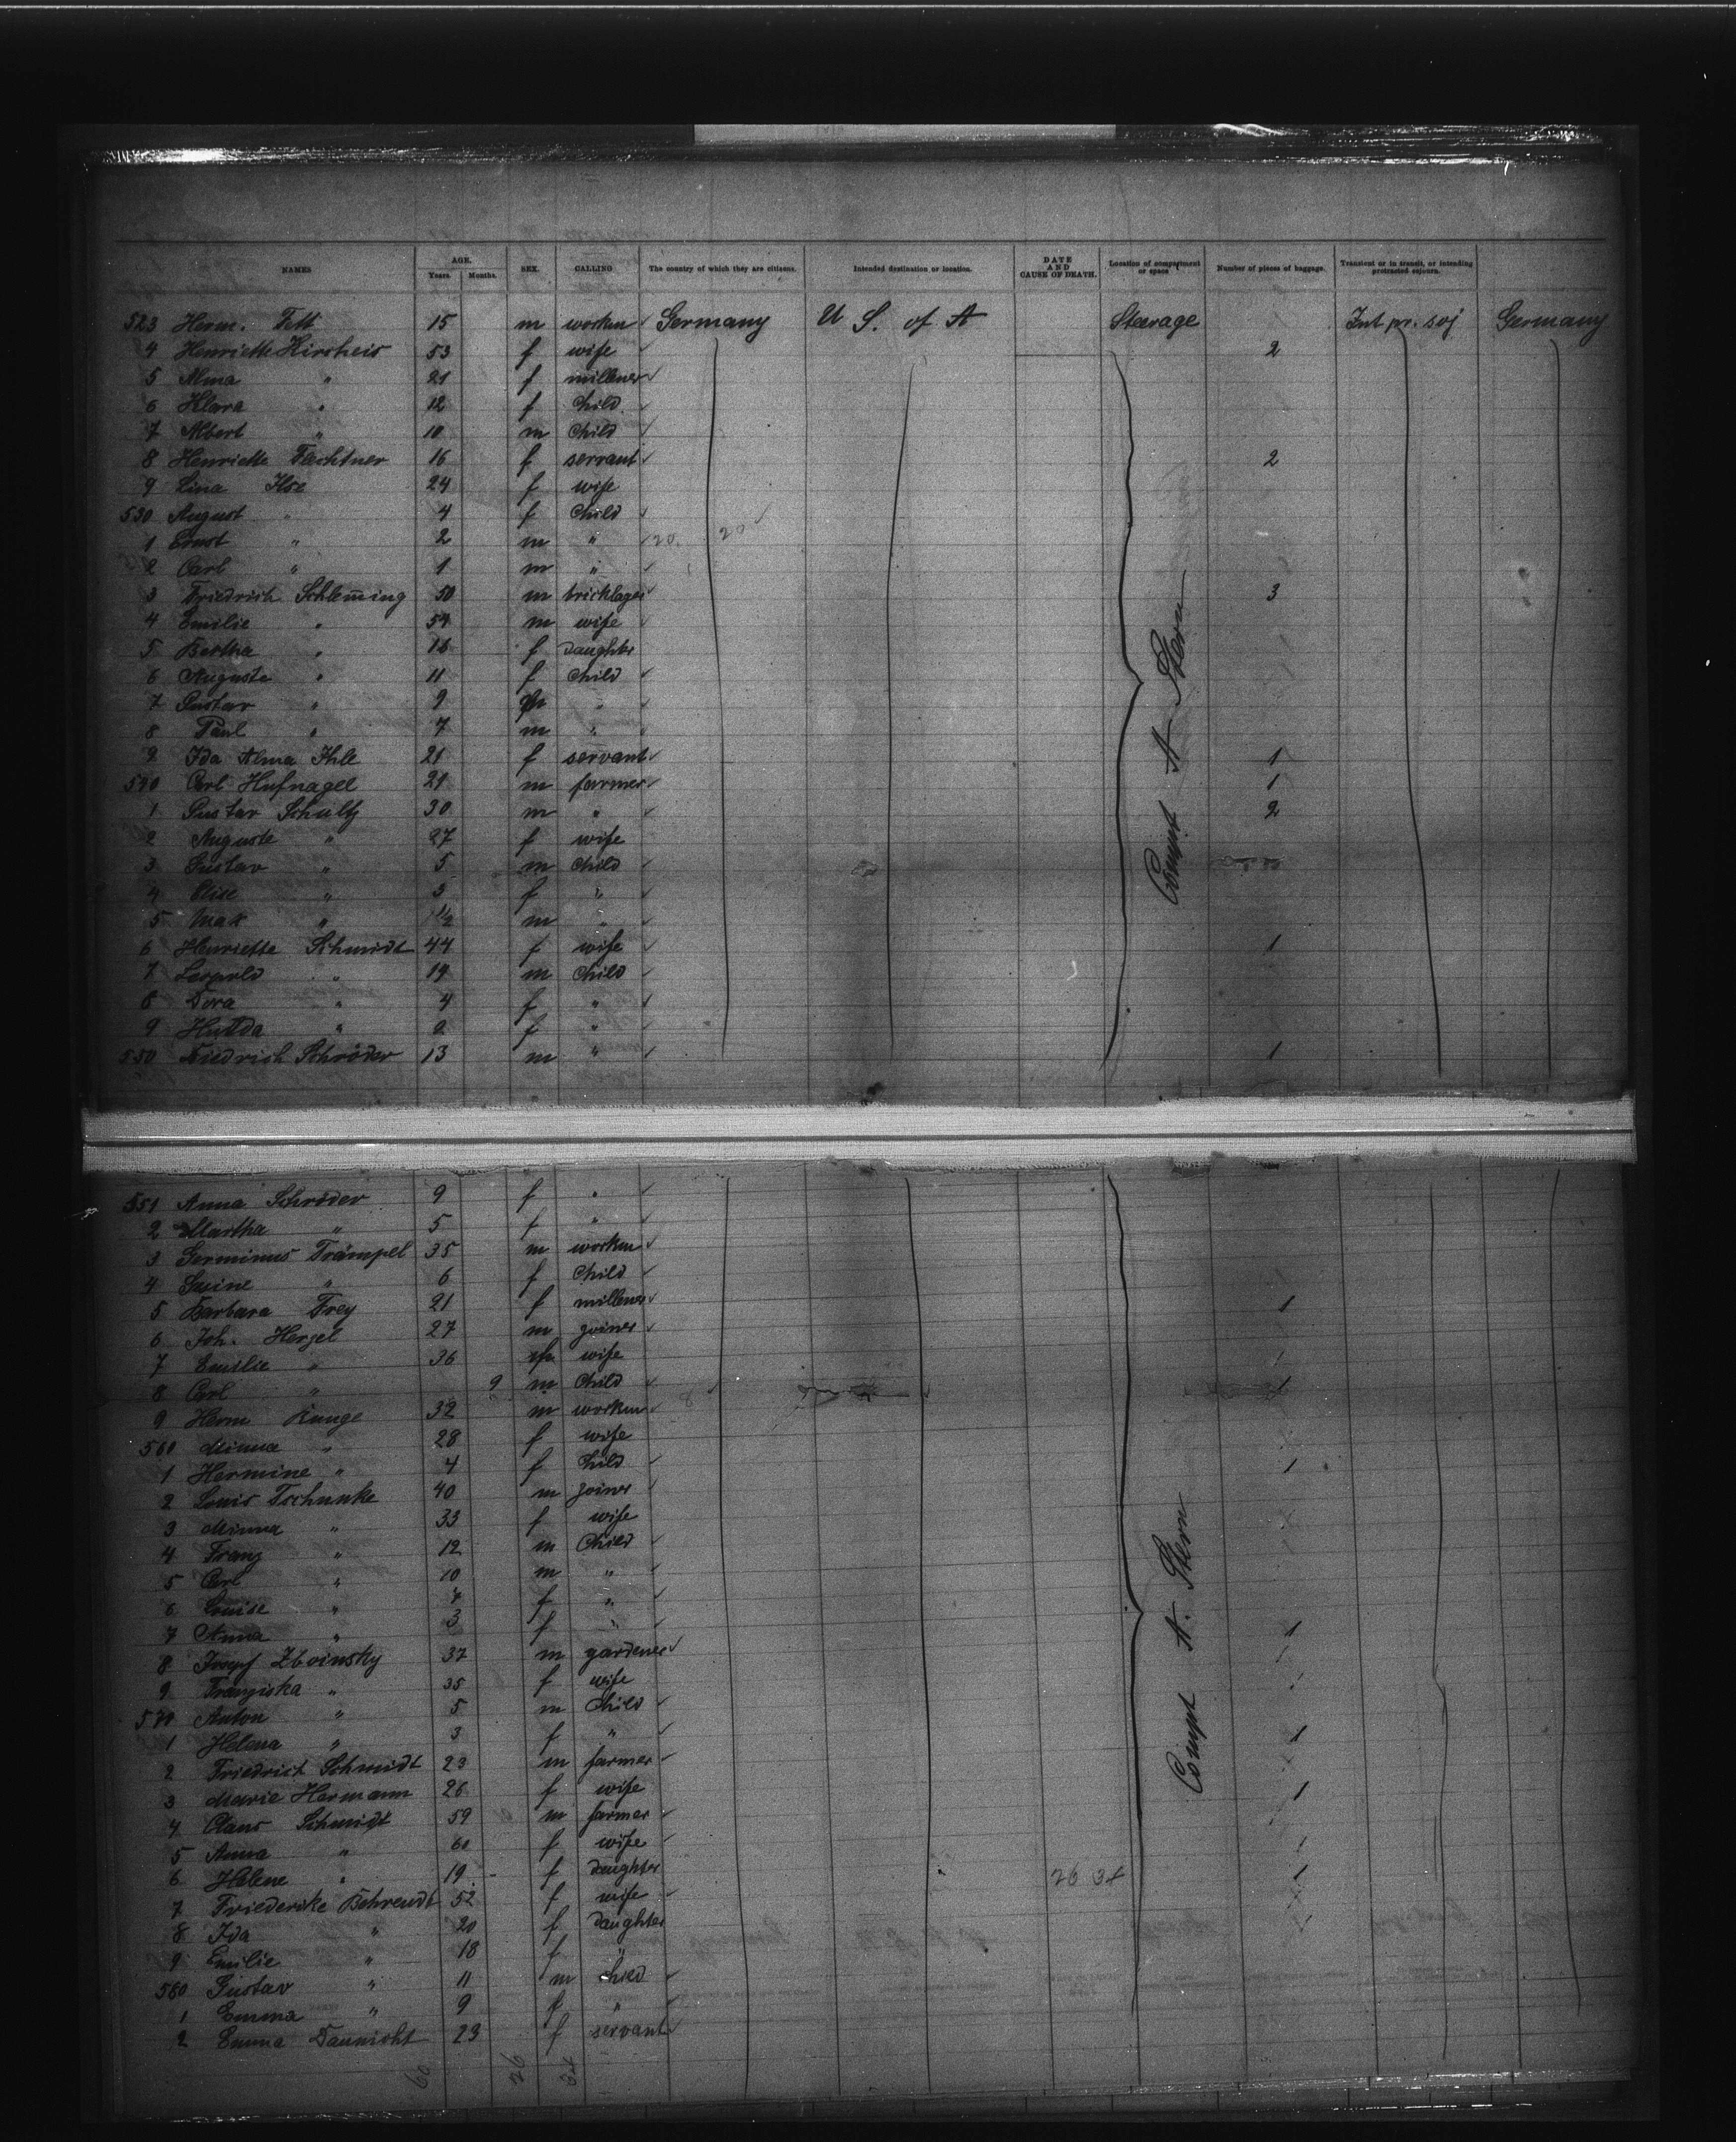 NAMES AGE. Years. Months. SEX. CALLING The country of which they are citizens. Intended destination or location. DATE AND CAUSE OF DEATH. Location of compartment or space Number of pieces of baggage. Transient or in transit, or intending protracted sojourn.
523 Herm. Fett 15 m worken Germany U S. of A Steerage Int pr. soj Germany
4 Henriette Hirsheis 53 f wife 2
5 Alma " 21 f millener
6 Klara " 12 f Child
7 Albert " 10 m Child
8 Henriette Fechtner 16 f servant 2
9 Lina Ilse 24 f wife
530 August " 4 f Child
1 Ernst " 2 m " 20. 20
2 Carl " 1 m "
3 Friedrich Schlem̅ing 50 m bricklager 3
4 Emilie " 54 m wife
5 Bertha " 16 f Daughter
6 Auguste " 11 f Child
7 Gustav " 9 m "
8 Paul " 7 m "
9 Ida Alma Ihle 21 f servant 1
540 Carl Hufnagel 21 m farmer 1
1 Gustav Schultz 30 m " 2
2 Auguste " 27 f wife
3 Gustav " 5 m Child
4 Elise " 3 f "
5 Max " 1/2 m "
6 Henriette Schmidt 44 f wife 1
7 Leopold " 14 m Child
8 Dora " 4 f "
9 Hulda " 2 f "
550 Friedrich Schröder 13 m " 1
Compt A Stern
551 Anna Schröder 9 f "
2 Martha " 5 f "
3 Germinus Trämpel 35 m worken
4 Gesine " 6 f Child
5 Barbara Frey 21 f millener 1
6 Joh. Hergel 27 m joiner
7 Emilie " 36 wife
8 Carl " 9 m Child 1
9 Herm Runge 32 m worken
560 Minna " 28 f wife
1 Hermine " 4 f Child 1
2 Louis Tschunke 40 m joiner
3 Minna " 33 f wife
4 Franz " 12 m Child
5 Carl " 10 m "
6 Louise " 7 f "
7 Anna " 3 f " 1
8 Josef Zboinsky 37 m gardener
9 Franziska " 35 f wife
570 Anton " 5 m Child
1 Helena " 3 f " 1
2 Friedrich Schmidt 23 m farmer
3 Marie Hermann 26 f wife 1
4 Claus Schmidt 59 m farmer
5 Anna " 60 f wife
6 Helene " 19 f daughter 26 34 1
7 Friederike Behrendt 52 f wife
8 Ida " 20 f Daughter
9 Emilie " 18 f "
580 Gustav " 11 m child
1 Emma " 9 f "
2 Emma Daunicht 23 f servant
Compt A. Stern
60 26 34